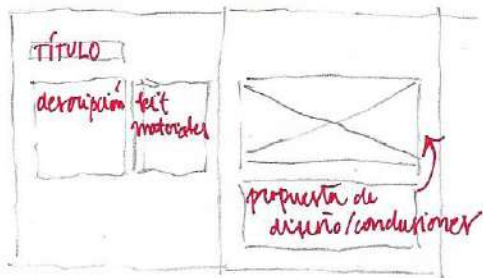 TÍTULO
descripción
kit
materiales
propuesta de
diseño/conclusiones